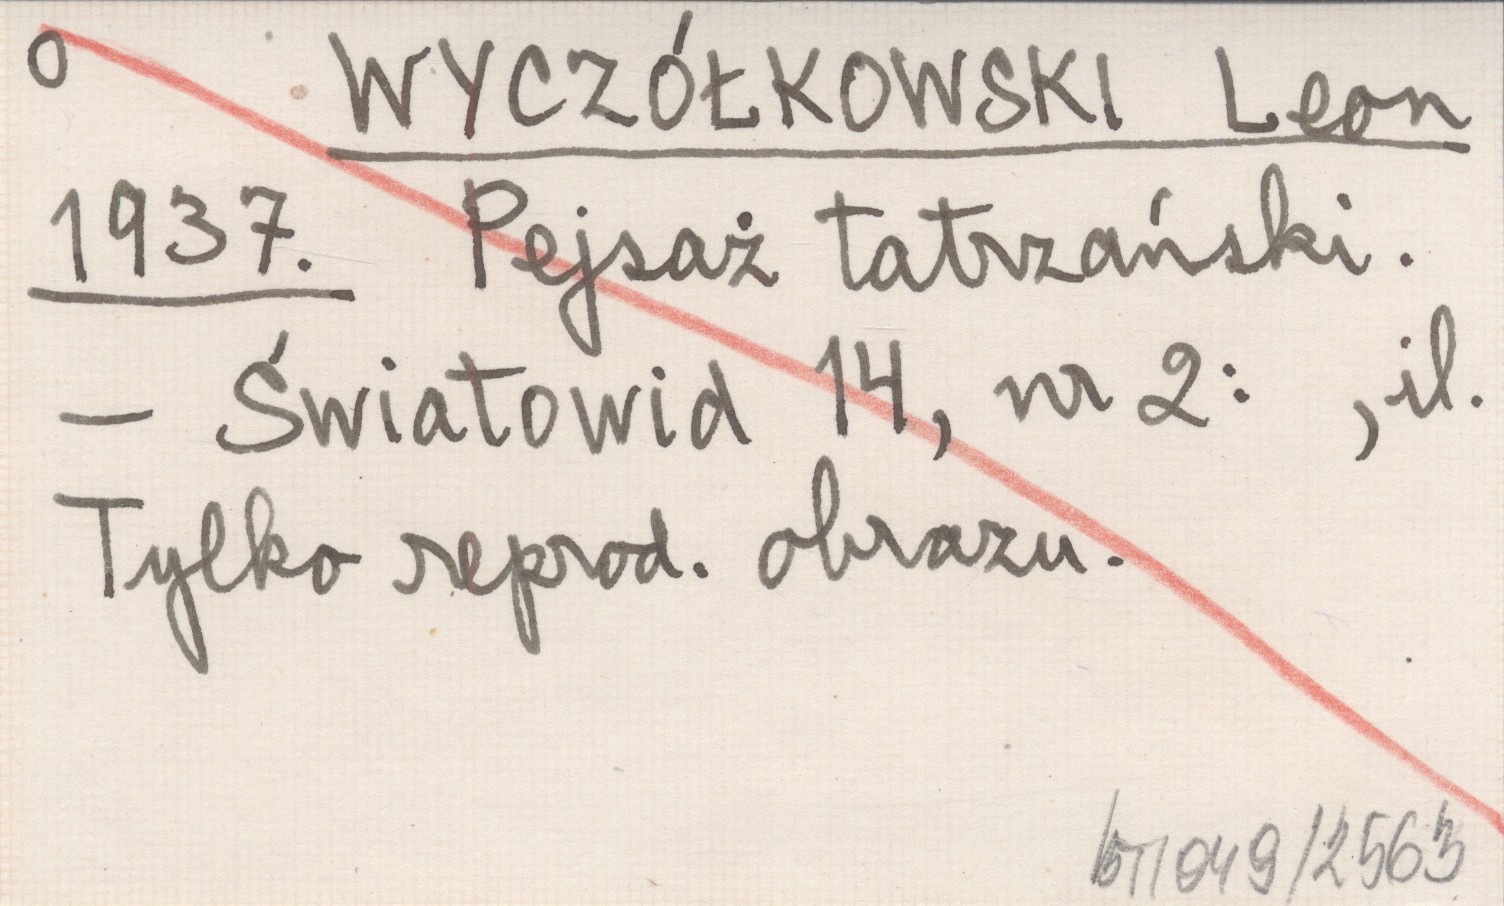 O WYCZÓŁKOWSKI Leon
1937. Pejsaż tatrzański.
– Światowid 14, nr 2: , il.
Tylko reprod. obrazu.
049/2563